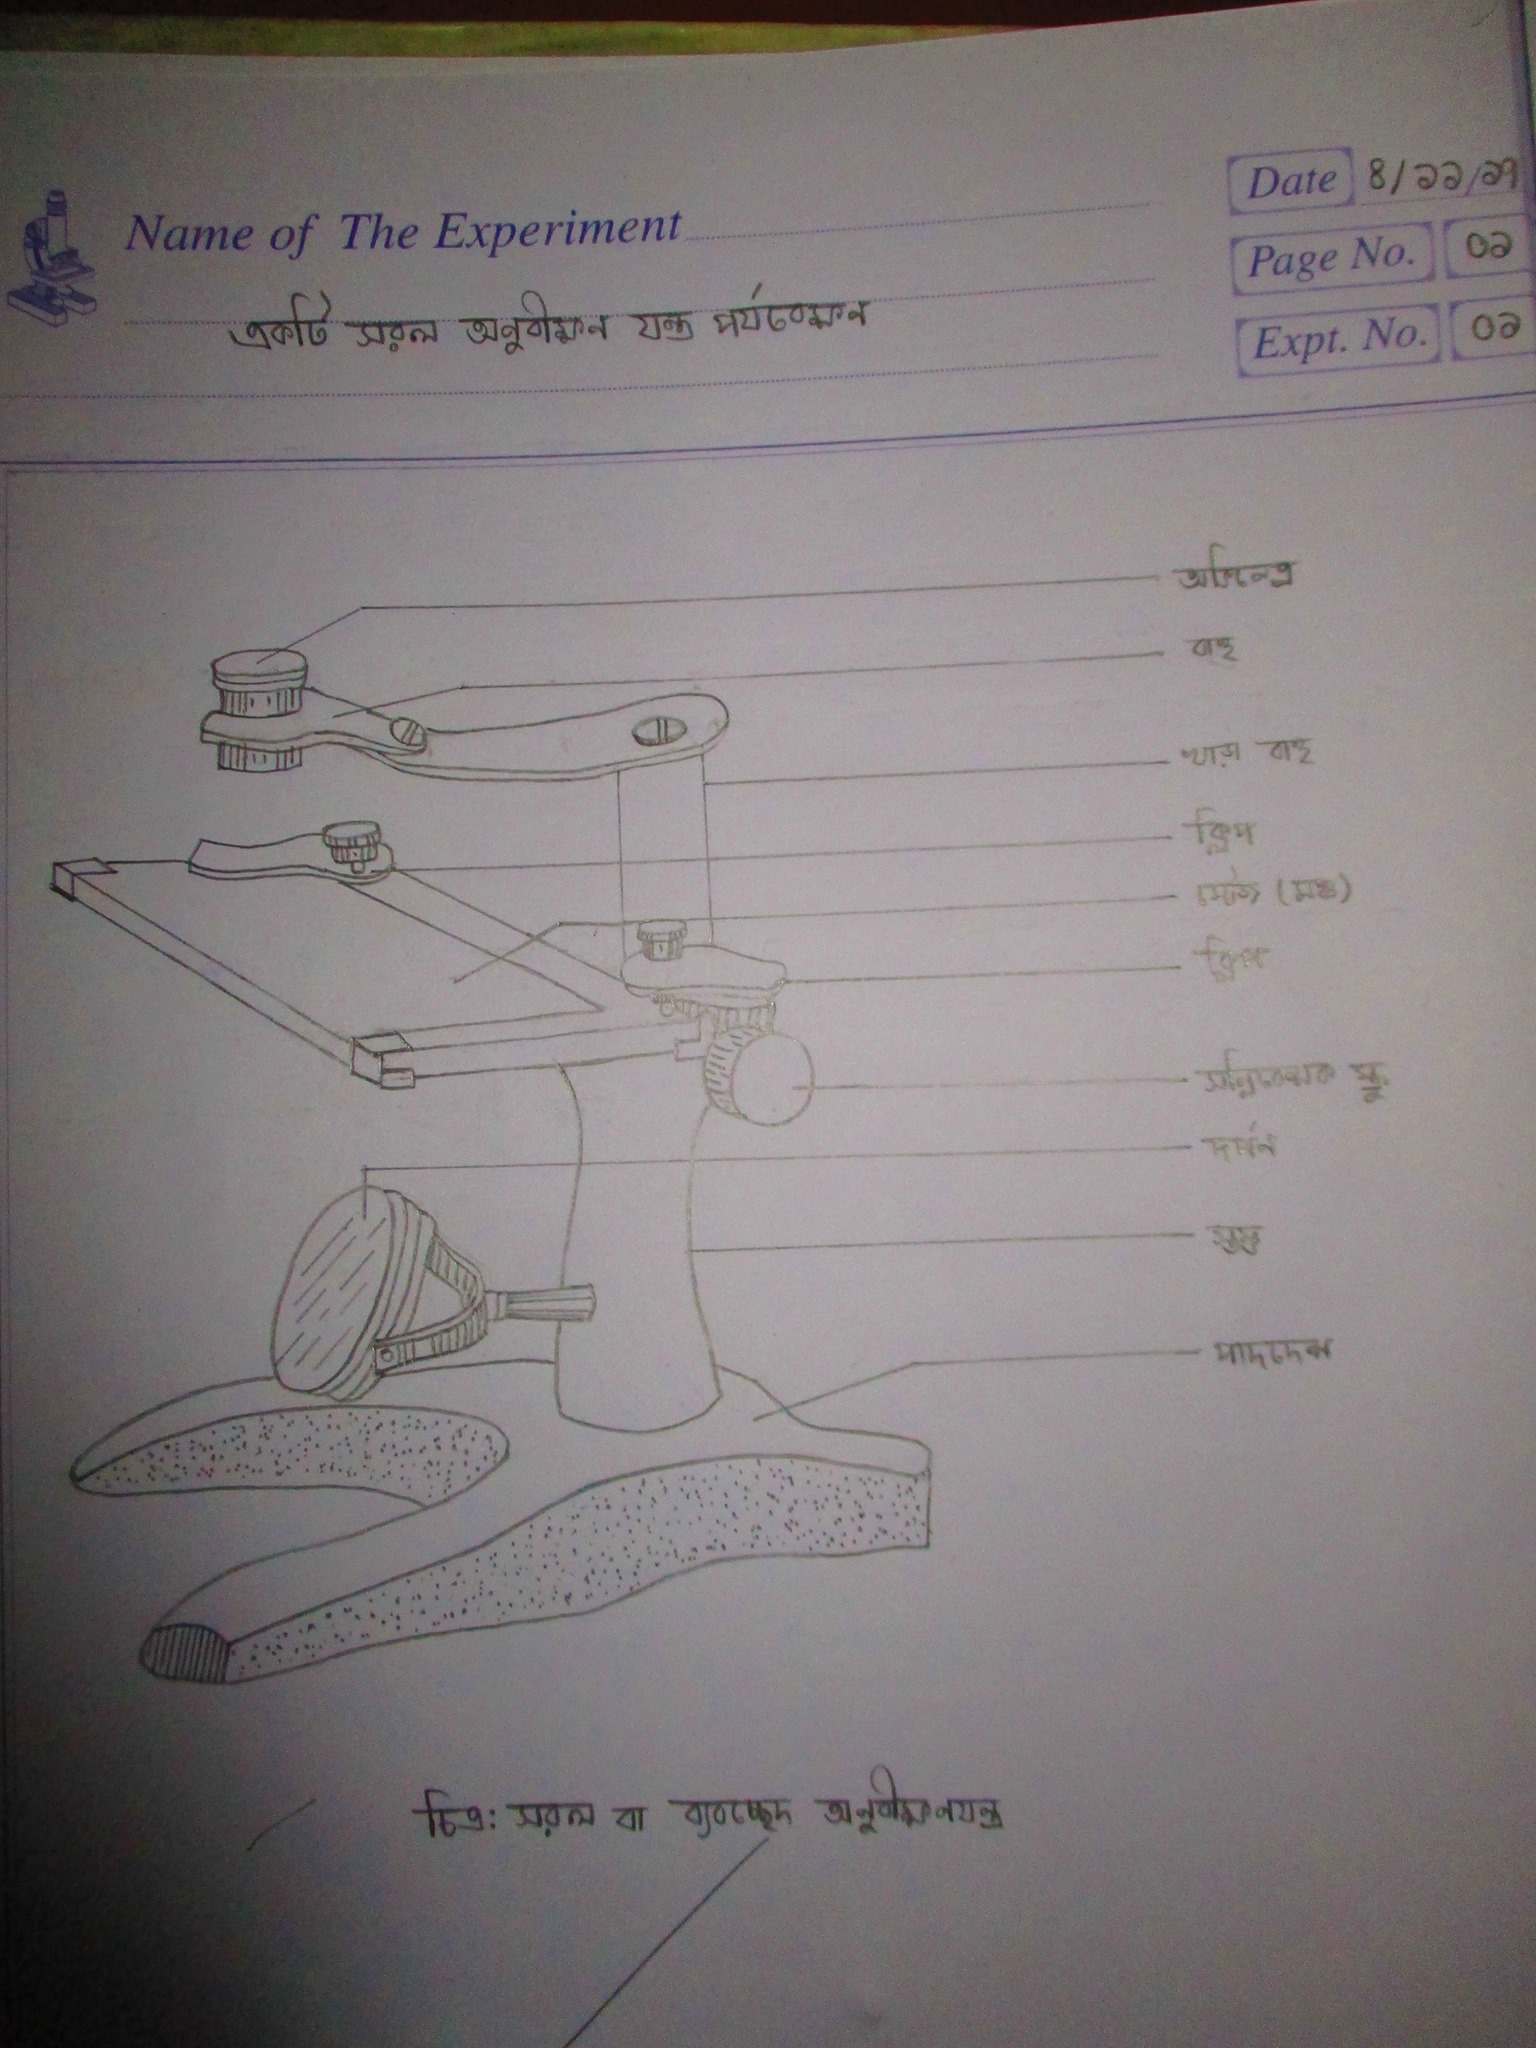 Name of The Experiment
একটি সরল অনুবীক্ষন যন্ত্র পর্যবেক্ষন
Date ৪/১১/১৭
Page No. ০১
Expt. No. ০১
অভিনেত্র
বাহু
খাড়া বাহু
ক্লিপ
স্টেজ (মঞ্চ)
ক্লিপ
স্ক্রু
দর্পন
স্তম্ভ
পাদদেশ
চিত্র: সরল বা ব্যবচ্ছেদ অনুবীক্ষনযন্ত্র